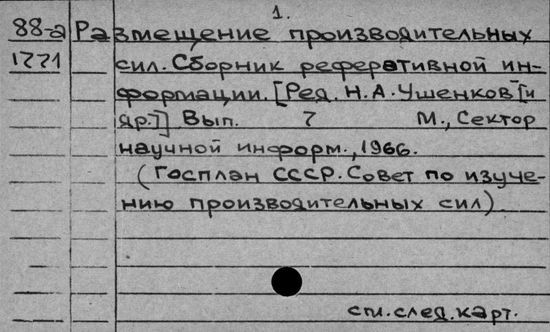 1.
88-а Размещение производительных
1221 сил. Сборник реферативной ин-
формации. [Ред. Н.А. Ушенков [и
др.]] Вып. 7 М., Сектор
научной информ., 1966.
(Госплан СССР. Совет по изуче-
нию производительных сил)
см. след. карт.